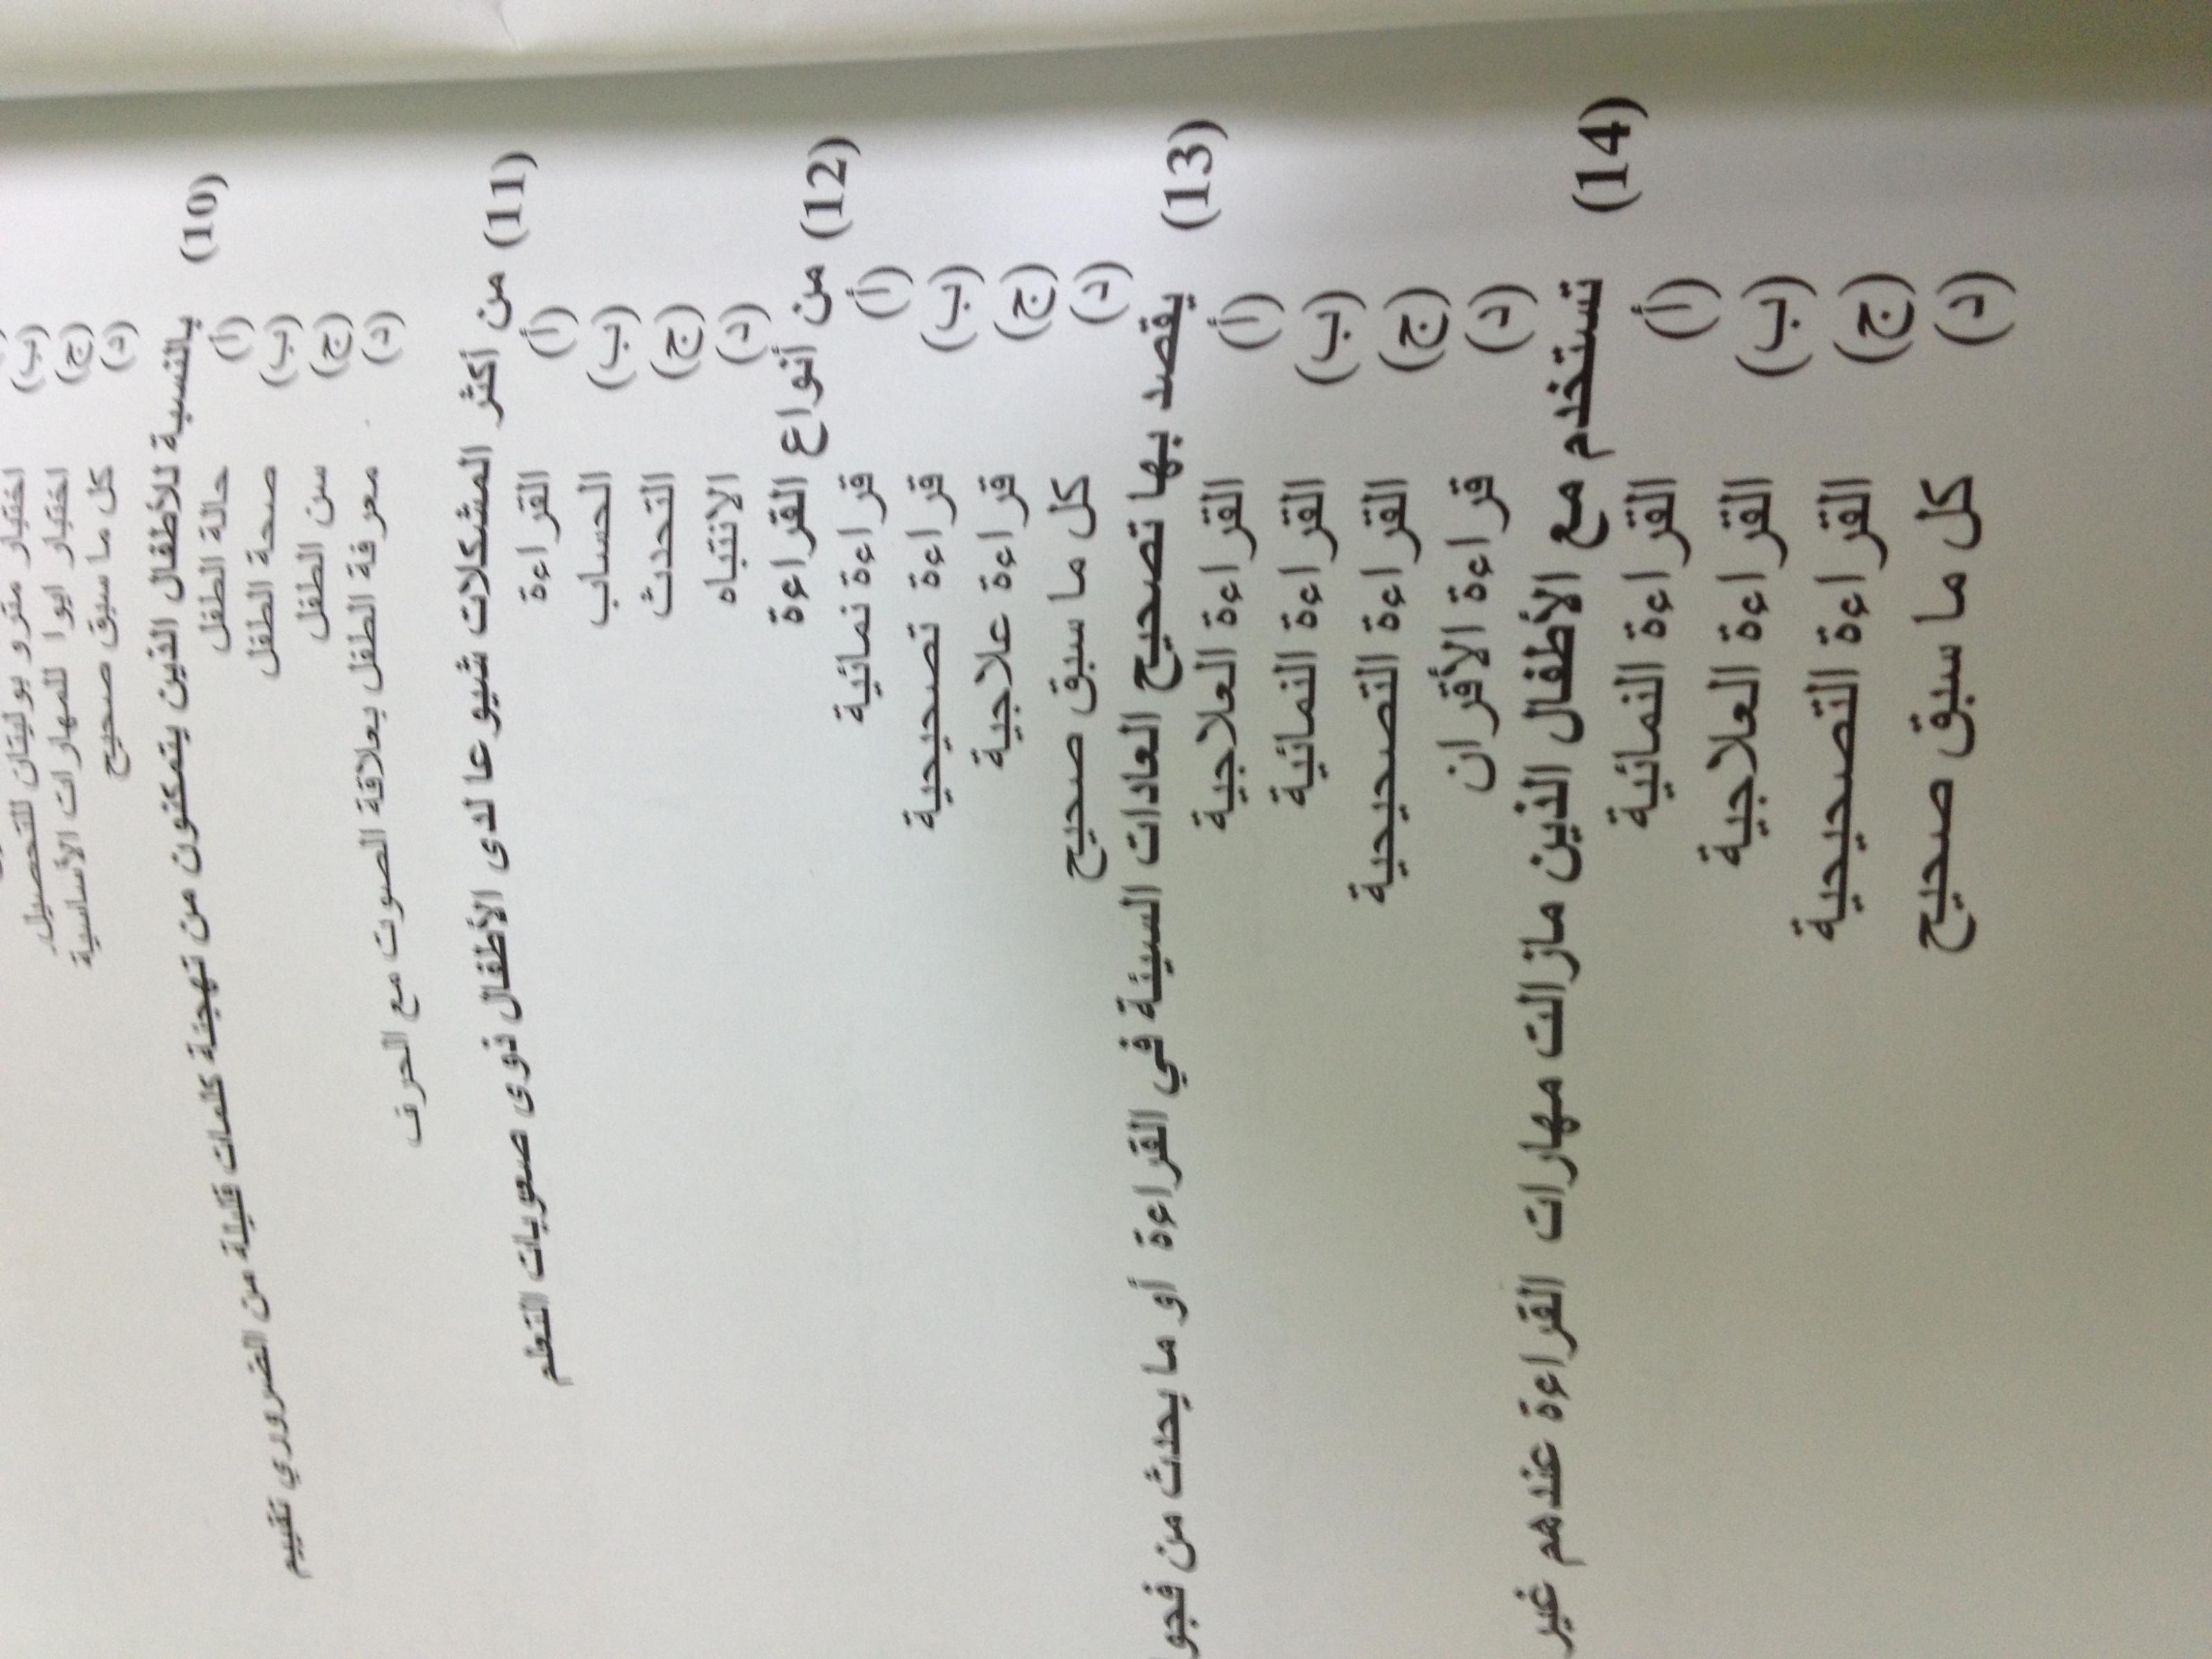 (ب) اختبار مترو بوليتان للتحصيل
(ج) اختبار ايوا للمهارات الأساسية
(د) كل ما سبق صحيح
(10) بالنسبة للأطفال الذين يتمكنون من تهجئة كلمات قليلة من الضروري تقييم
(أ) حالة الطفل
(ب) صحة الطفل
(ج) سن الطفل
(د) معرفة الطفل بعلاقة الصوت مع الحرف
(11) من أكثر المشكلات شيوعا لدى الأطفال ذوى صعوبات التعلم
(أ) القراءة
(ب) الحساب
(ج) التحدث
(د) الانتباه
(12) من أنواع القراءة
(أ) قراءة نمائية
(ب) قراءة تصحيحية
(ج) قراءة علاجية
(د) كل ما سبق صحيح
(13) يقصد بها تصحيح العادات السيئة في القراءة أو ما يحدث من فجو
(أ) القراءة العلاجية
(ب) القراءة النمائية
(ج) القراءة التصحيحية
(د) قراءة الأقران
(14) تستخدم مع الأطفال الذين مازالت مهارات القراءة عندهم غير
(أ) القراءة النمائية
(ب) القراءة العلاجية
(ج) القراءة التصحيحية
(د) كل ما سبق صحيح